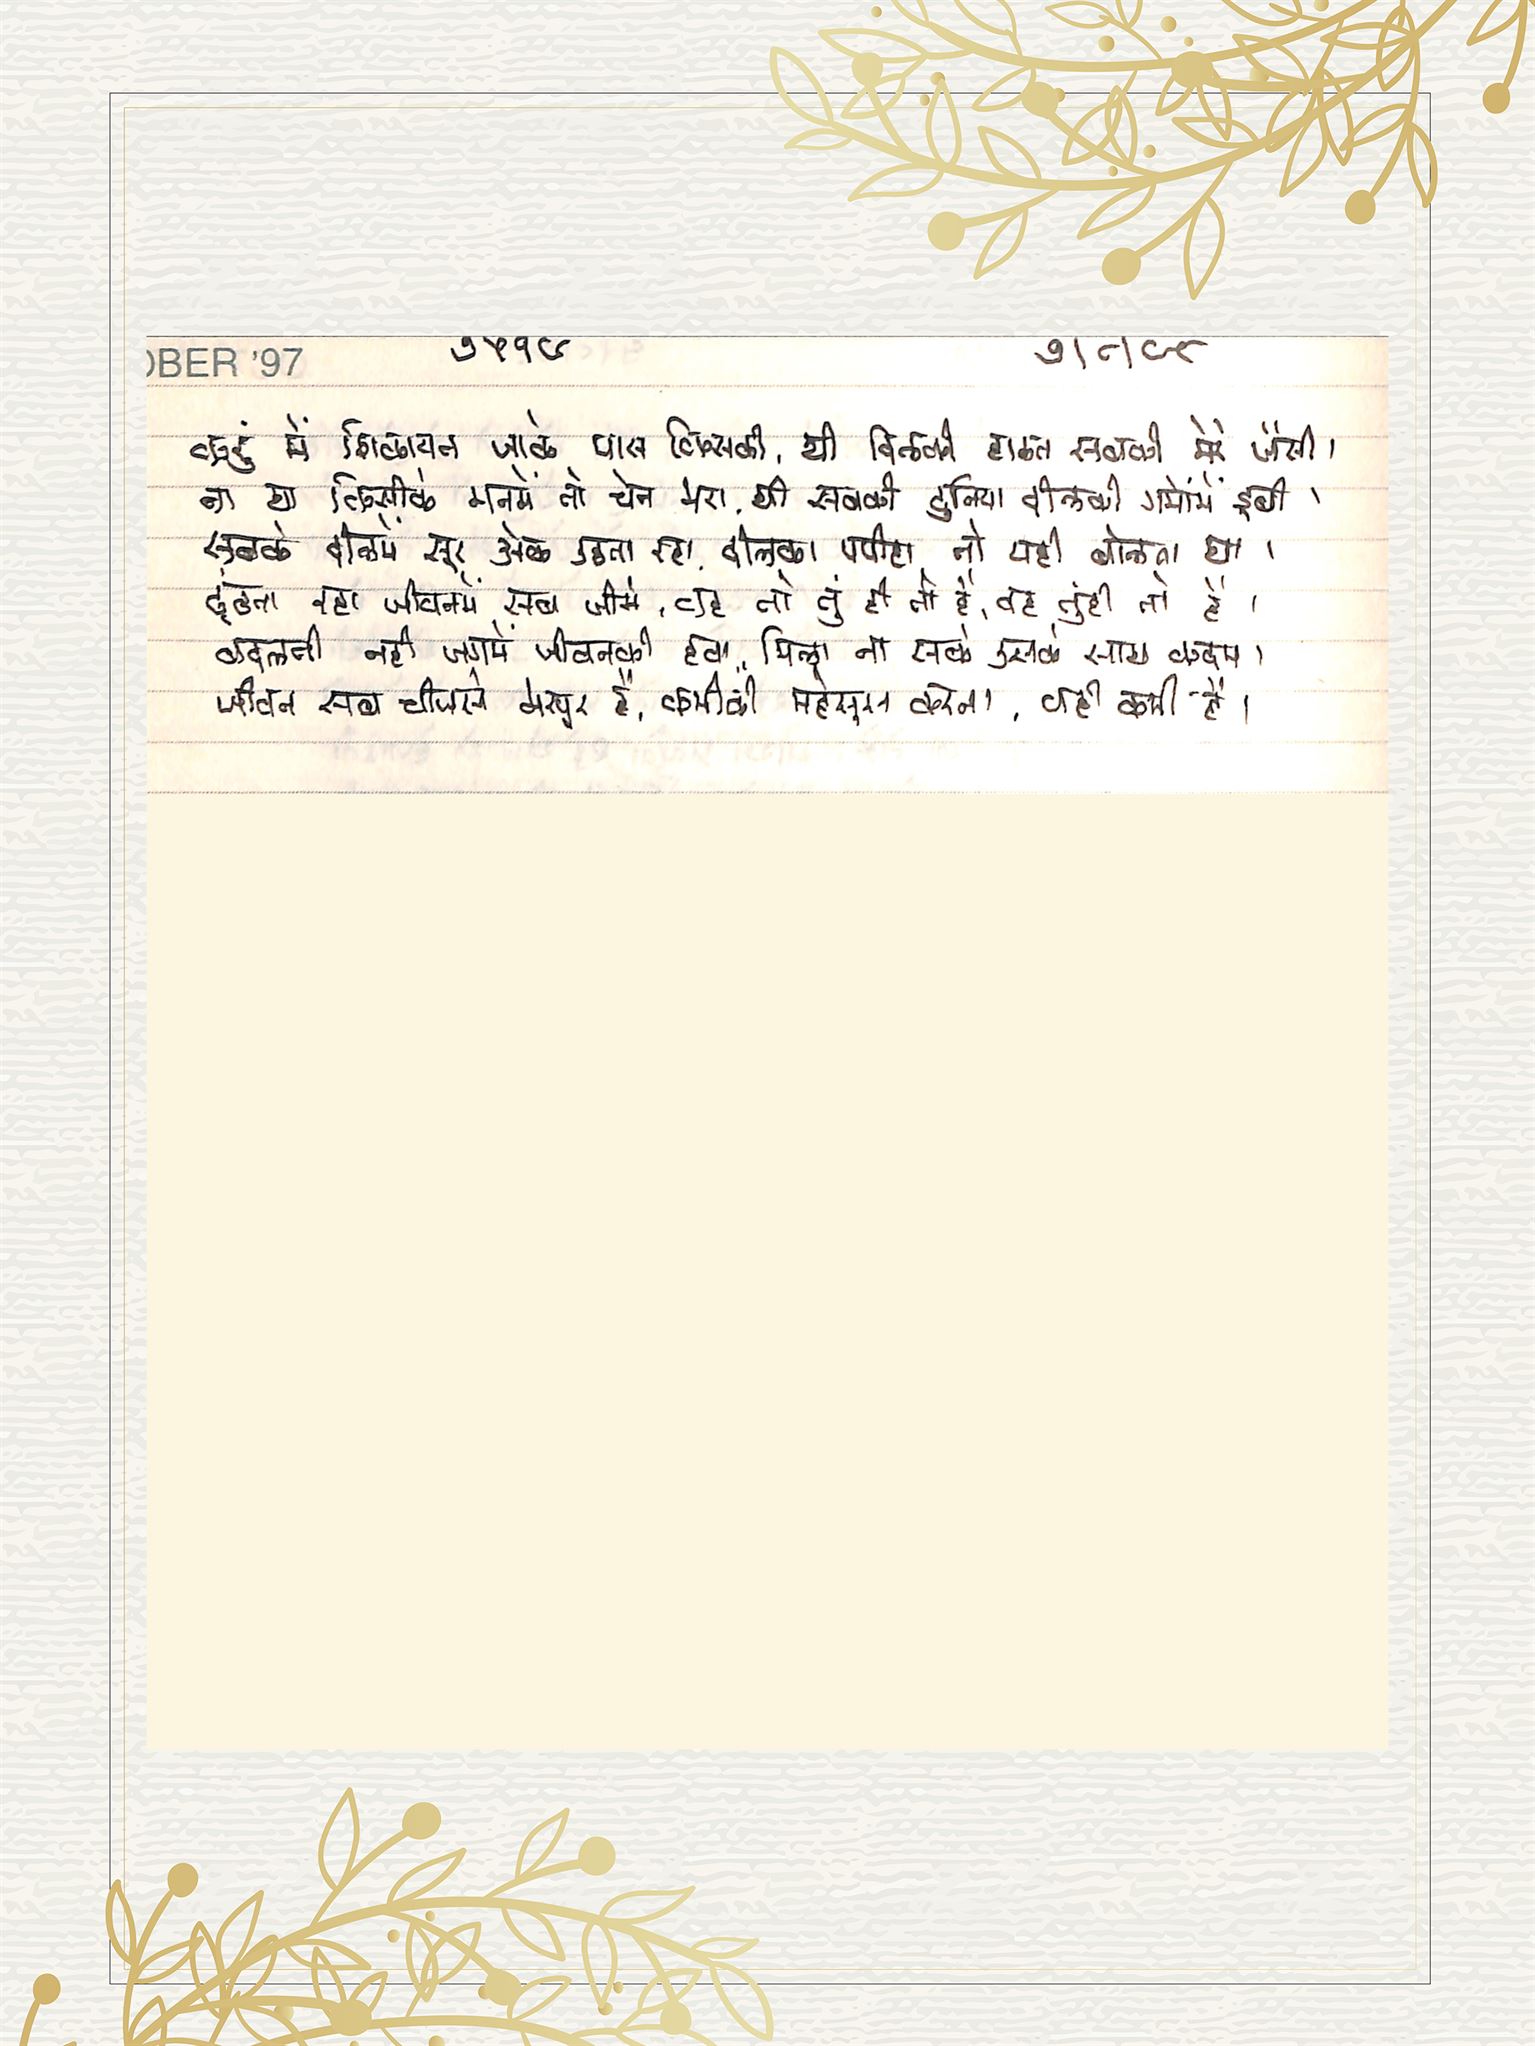 OBER '97 ૭૫૧૯
कहुं में शिकायत जाके पास किसकी, थी दिलकी हालत सबकी मेरे जैसी।
ना था किसीके मनमें तो चेन भरा, थी सबकी दुनिया दीलकी गमोंमें डूबी।
सबके दीलमें सूर अेक उठता रहा, दीलका पपीहा तो यही बोलता था।
ढूंढता रहा जीवनमें सब जीसे, वह तो तुं ही तो है, वह तुंही तो है।
बदलती नही जगमें जीवनकी हवा, मिला ना सके उसके साथ कदम।
जीवन सब चीजसे भरपुर है, कमीकी महेसूस करना, वही कमी है।